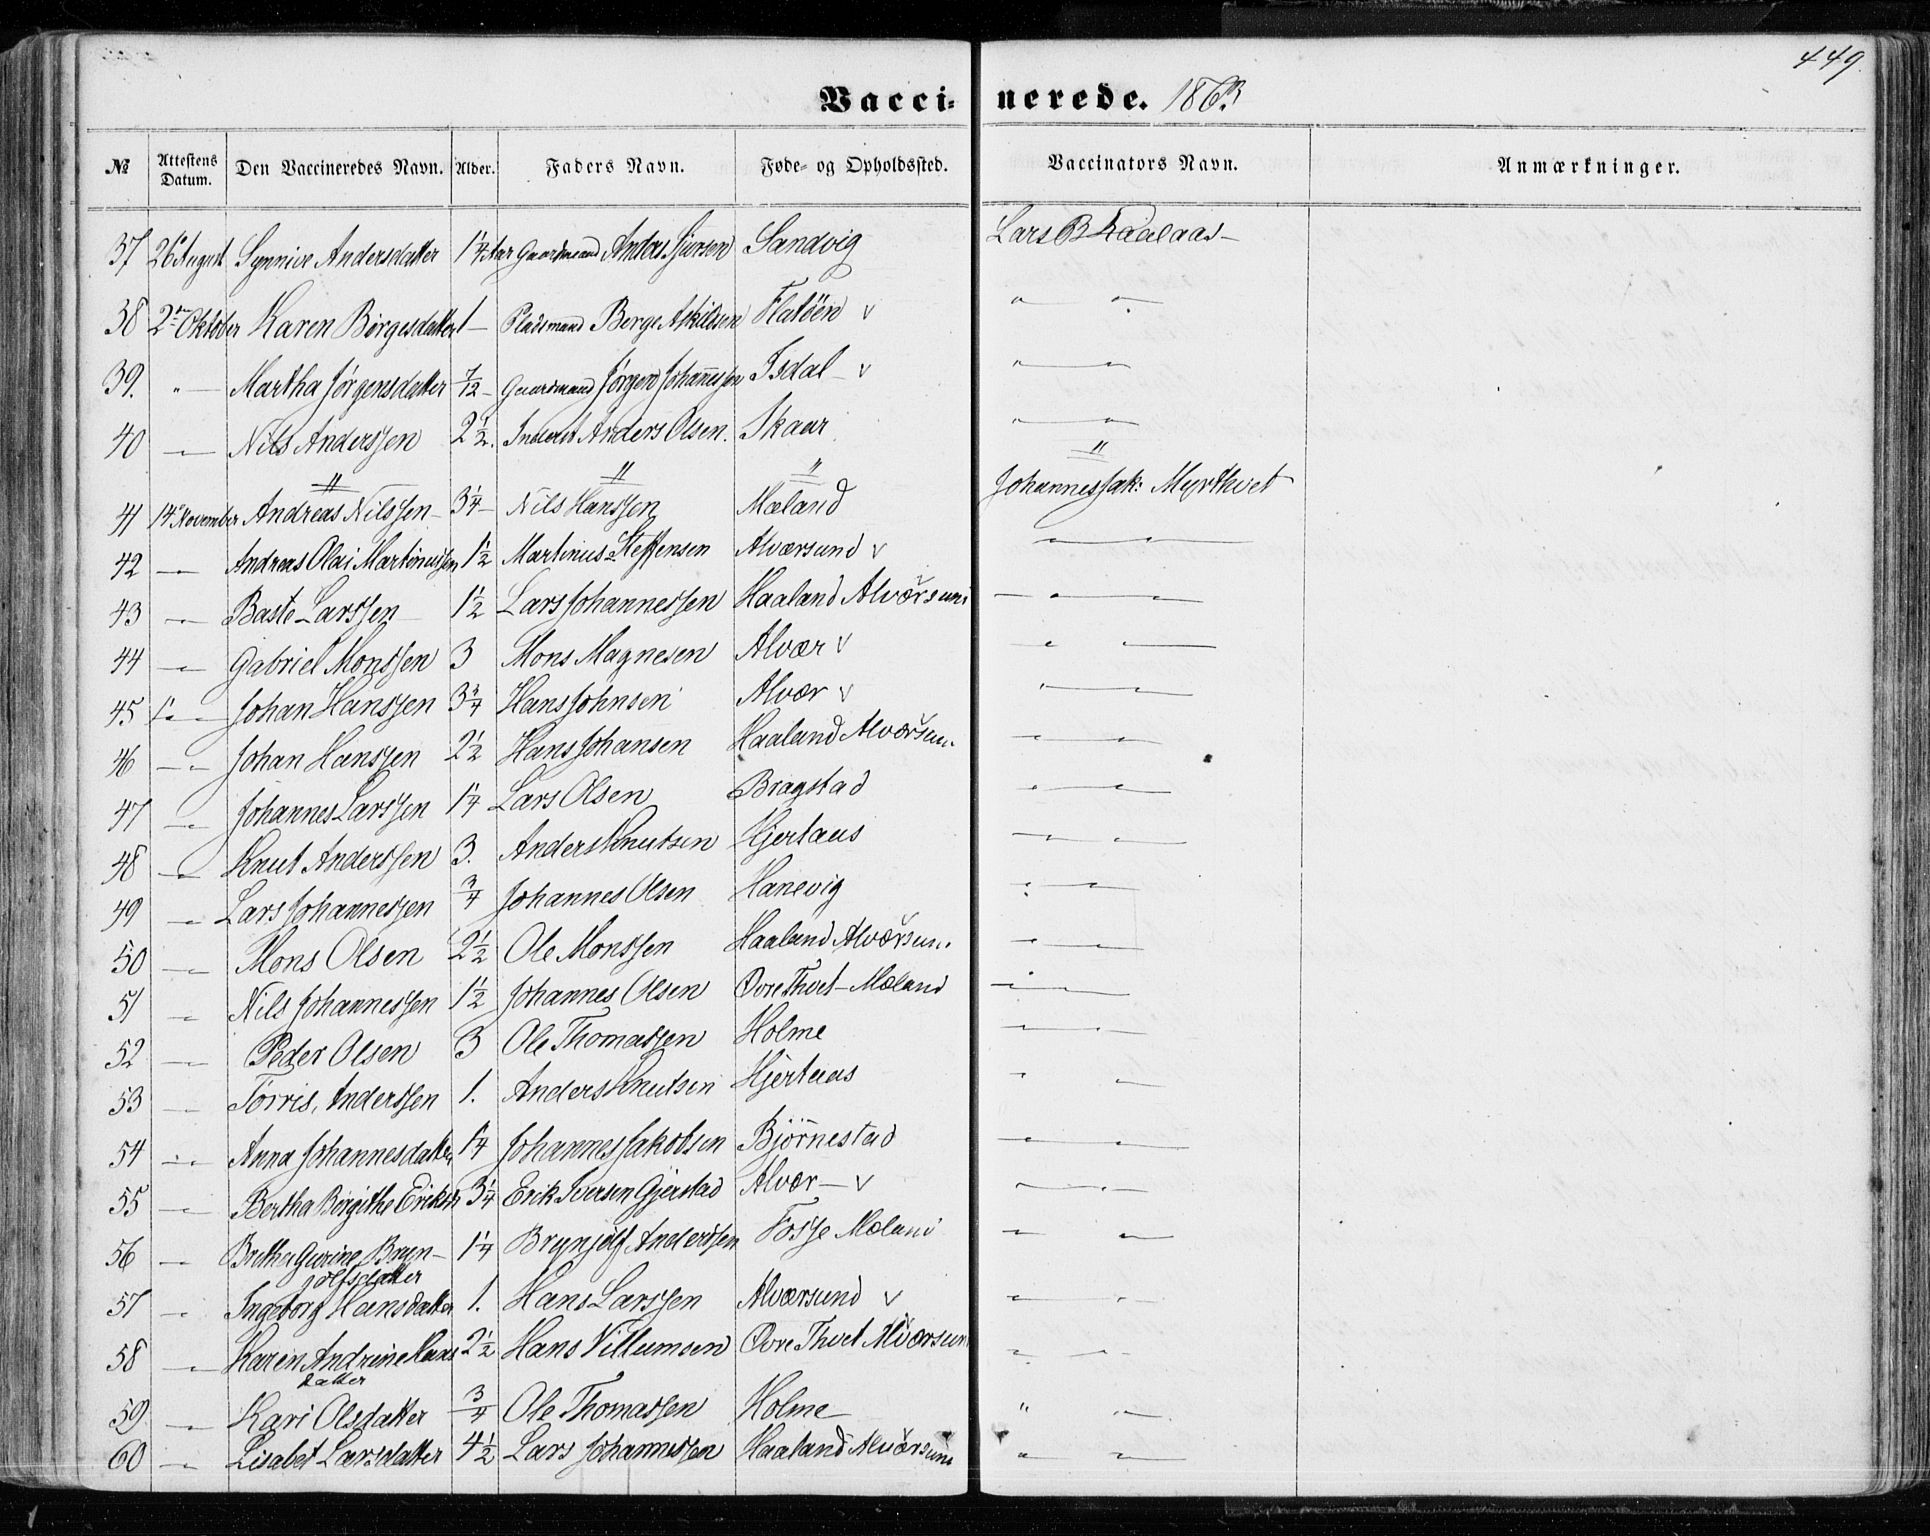 449.
Vacci- nerede. 1863
№ Attestens Datum. Den Vaccineredes Navn. Alder. Faders Navn. Føde- og Opholdssted. Vaccinators Navn. Anmærkninger.
37 26 August Synnive Andersdatter 1 1/4 Aar Gaardmand Anders Sjursen Sandvig Lars B
38 2den Oktober Karen Børgesdatter 1 — Pladsmand Berge Askildsen Flatøen v " "
39. " — Martha Jørgensdatter 7/12 — Gaardmand Jørgen Johannessen Isdal — v " "
40 — " — Nils Anderssen 2 1/2. Inderst Anders Olsen. Skaar " "
" " " "
41 14 November Andreas Nilssen — 3 1/4 — Nils Hanssen Mæland Johannes Jak: Myrthvet
42 — " — Andreas Olai Martinussen 1 1/2 Martinus Steffensen Alværsund v " "
43 — " — Baste Larssen 1 1/2 Lars Johannessen Haaland Alværsund — " "
44 — " — Gabriel Monssen 3 Mons Magnesen Alvær v " "
45 — " — Johan Hanssen 3 3/4 Hans Johnsen Alvær v " "
46 — " — Johan Hanssen 2 1/2 Hans Johansen Haaland Alværsun. " "
47 — " — Johannes Larssen 1 1/4 Lars Olsen Bragstad " "
48 — " — Knut Anderssen 3. Anders Knutsen Hjertaas " "
49 — " — Lars Johannessen 3/4 Johannes Olsen Hanevig " "
50 — " — Mons Olsen 2 1/2 Ole Monssen Haaland Alværsun. " "
51 — " — Nils Johannessen 1 1/2 Johannes Olsen Øvre Thvet — Mæland " "
52 — " — Peder Olsen 3 Ole Thomassen Holme " "
53 — " — Tørris, Anderssen 1. Anders Knutsen Hjertaas " "
54 — " — Anna Johannesdatter 1 1/4 Johannes Jakobsen Bjørnestad " "
55 — " — Bertha Birgithe Eriksdr 3 1/4 Erik Iversen Gjerstad Alvær — v " "
56 — " — Bretha Gurine Bryn- 1 1/4 Brynjolf Anderssen Fosse Mæland " "
jolfsdatter
57 — " — Ingeborg Hansdatter 1. Hans Larssen Alværsund v " "
58 — " — Karen Andrine Hans 2 1/2 Hans Villumsen Øvre Thvet Alværsun " "
datter
59 — " — Kari Olsdatter 3/4 Ole Thomassen Holme " "
60 — " — Lisabet Larsdatter 4 1/2 Lars Johannessen Haaland Alværsund " "